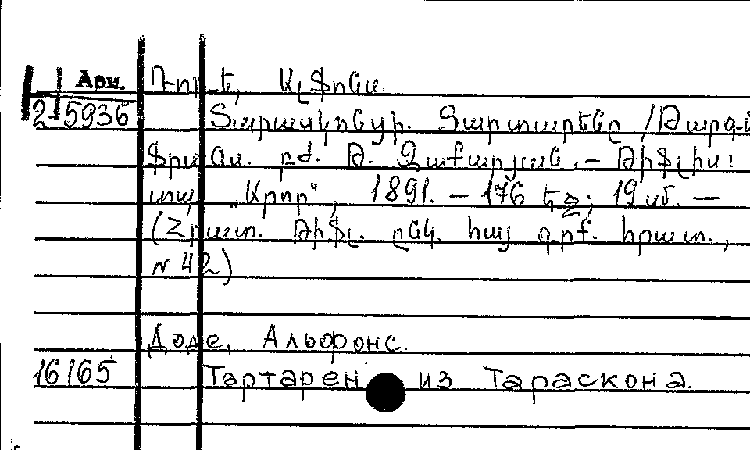 Арм. Դոդե, Ալֆոնս.
2-5936 Տարասկոնցի Տարտարենը /Թարգմ.
Ֆրանս. բժ. Թ. Զաքարյան.– Թիֆլիս:
տպ. „Արոր“, 1891. – 176 էջ; 19 սմ. –
(Հրատ. Թիֆլ. ընկ. հայ գրք. հրատ.,
N 42)
Доде, Альфонс.
16165 Тартарен из Тараскона.